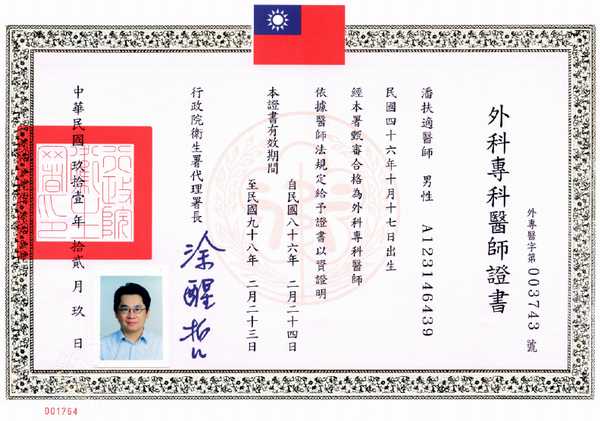 外專醫字第003743號
外科專科醫師證書
潘扶適醫師 男性 A123146439
民國四十六年十月十七日出生
經本署甄審合格為外科專科醫師
依據醫師法規定給予證書以資證明
本證書有效期間
自民國八十六年 二月二十四日
至民國九十八年 二月二十三日
行政院衛生署代理署長
涂醒哲
中華民國玖拾壹年拾貳月玖日
001764